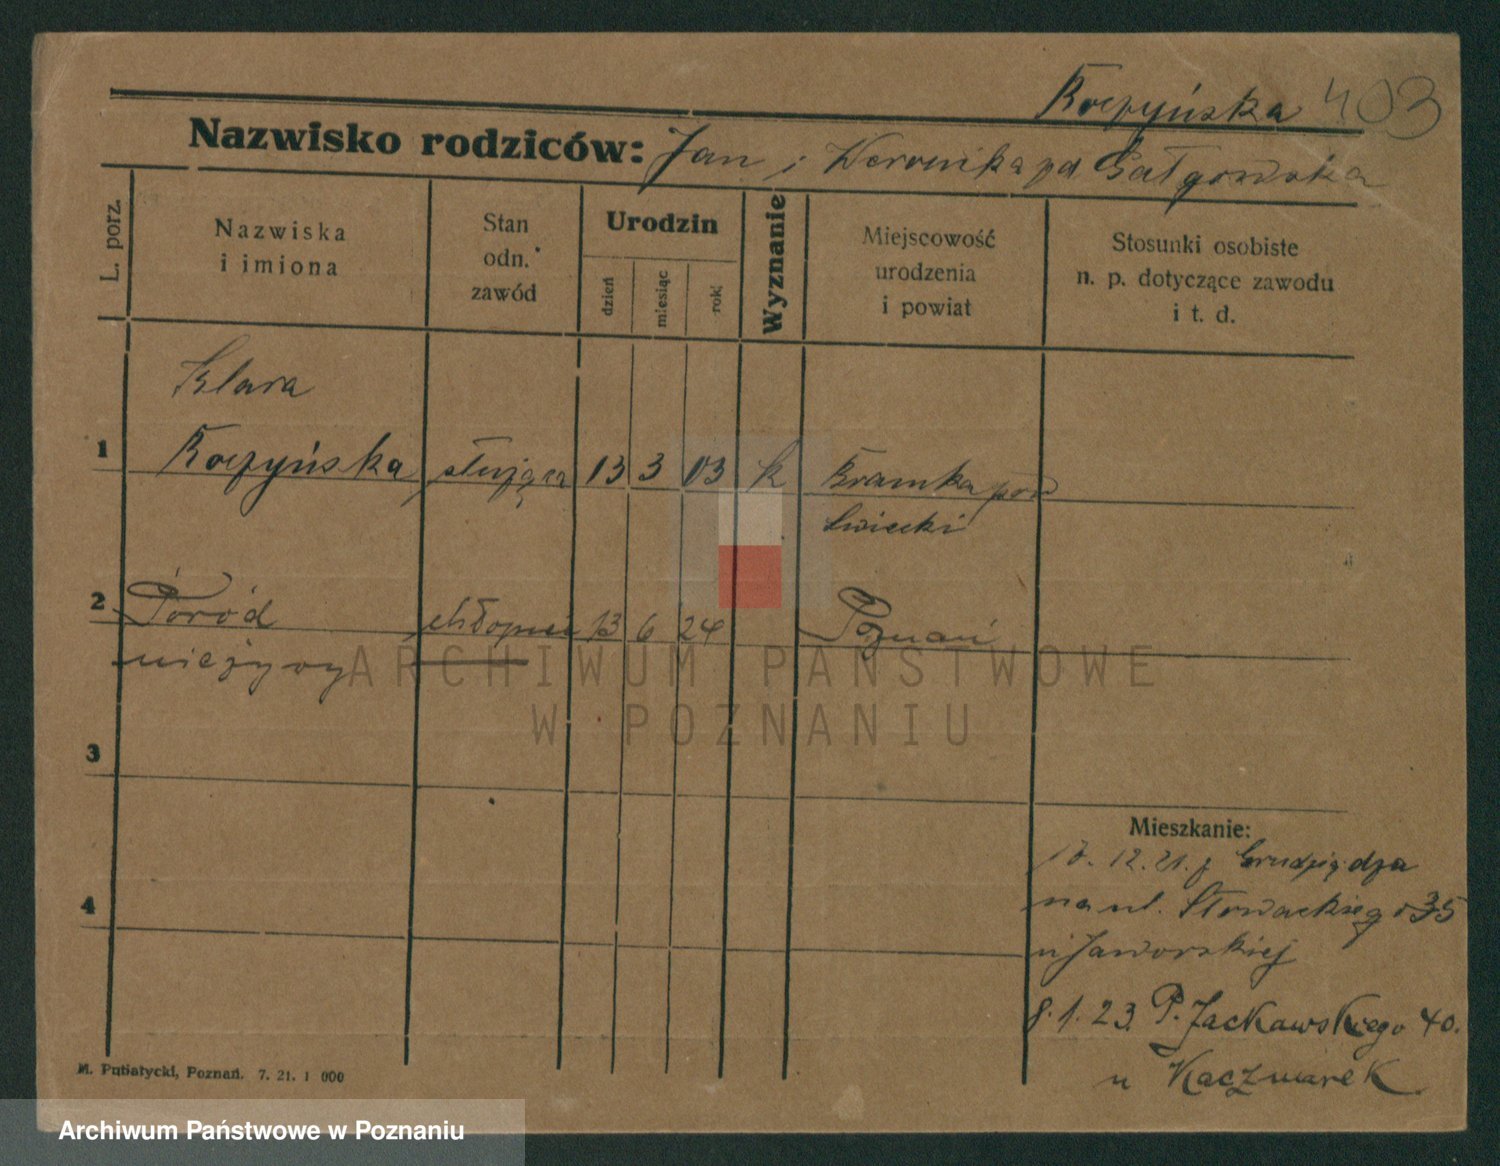 Koczyńska 403
Nazwisko rodziców: Jan i Weronika pd. Gałgowska
L. porz.
Nazwiska
i imiona
Stan
odn.
zawód
Urodzin
dzień
miesiąc
rok
Wyznanie
Miejscowość
urodzenia
i powiat
Stosunki osobiste
n. p. dotyczące zawodu
i t. d.
Klara
1 Koczyńska służąca 13 3 03 k Bramka pow
Świecki
2 Poród chłopiec 13 6 24 Poznań
nieżywy
3
4
Mieszkanie:
12. 21. z Grudziądza
na ul. Słowackiego 35
u Jaworskiej
8. 1. 23. P. Jackowskiego 40.
u Kaczmarek
M. Putiatycki, Poznań. 7. 21. 1 000
ARCHIWUM PAŃSTWOWE
W POZNANIU
Archiwum Państwowe w Poznaniu